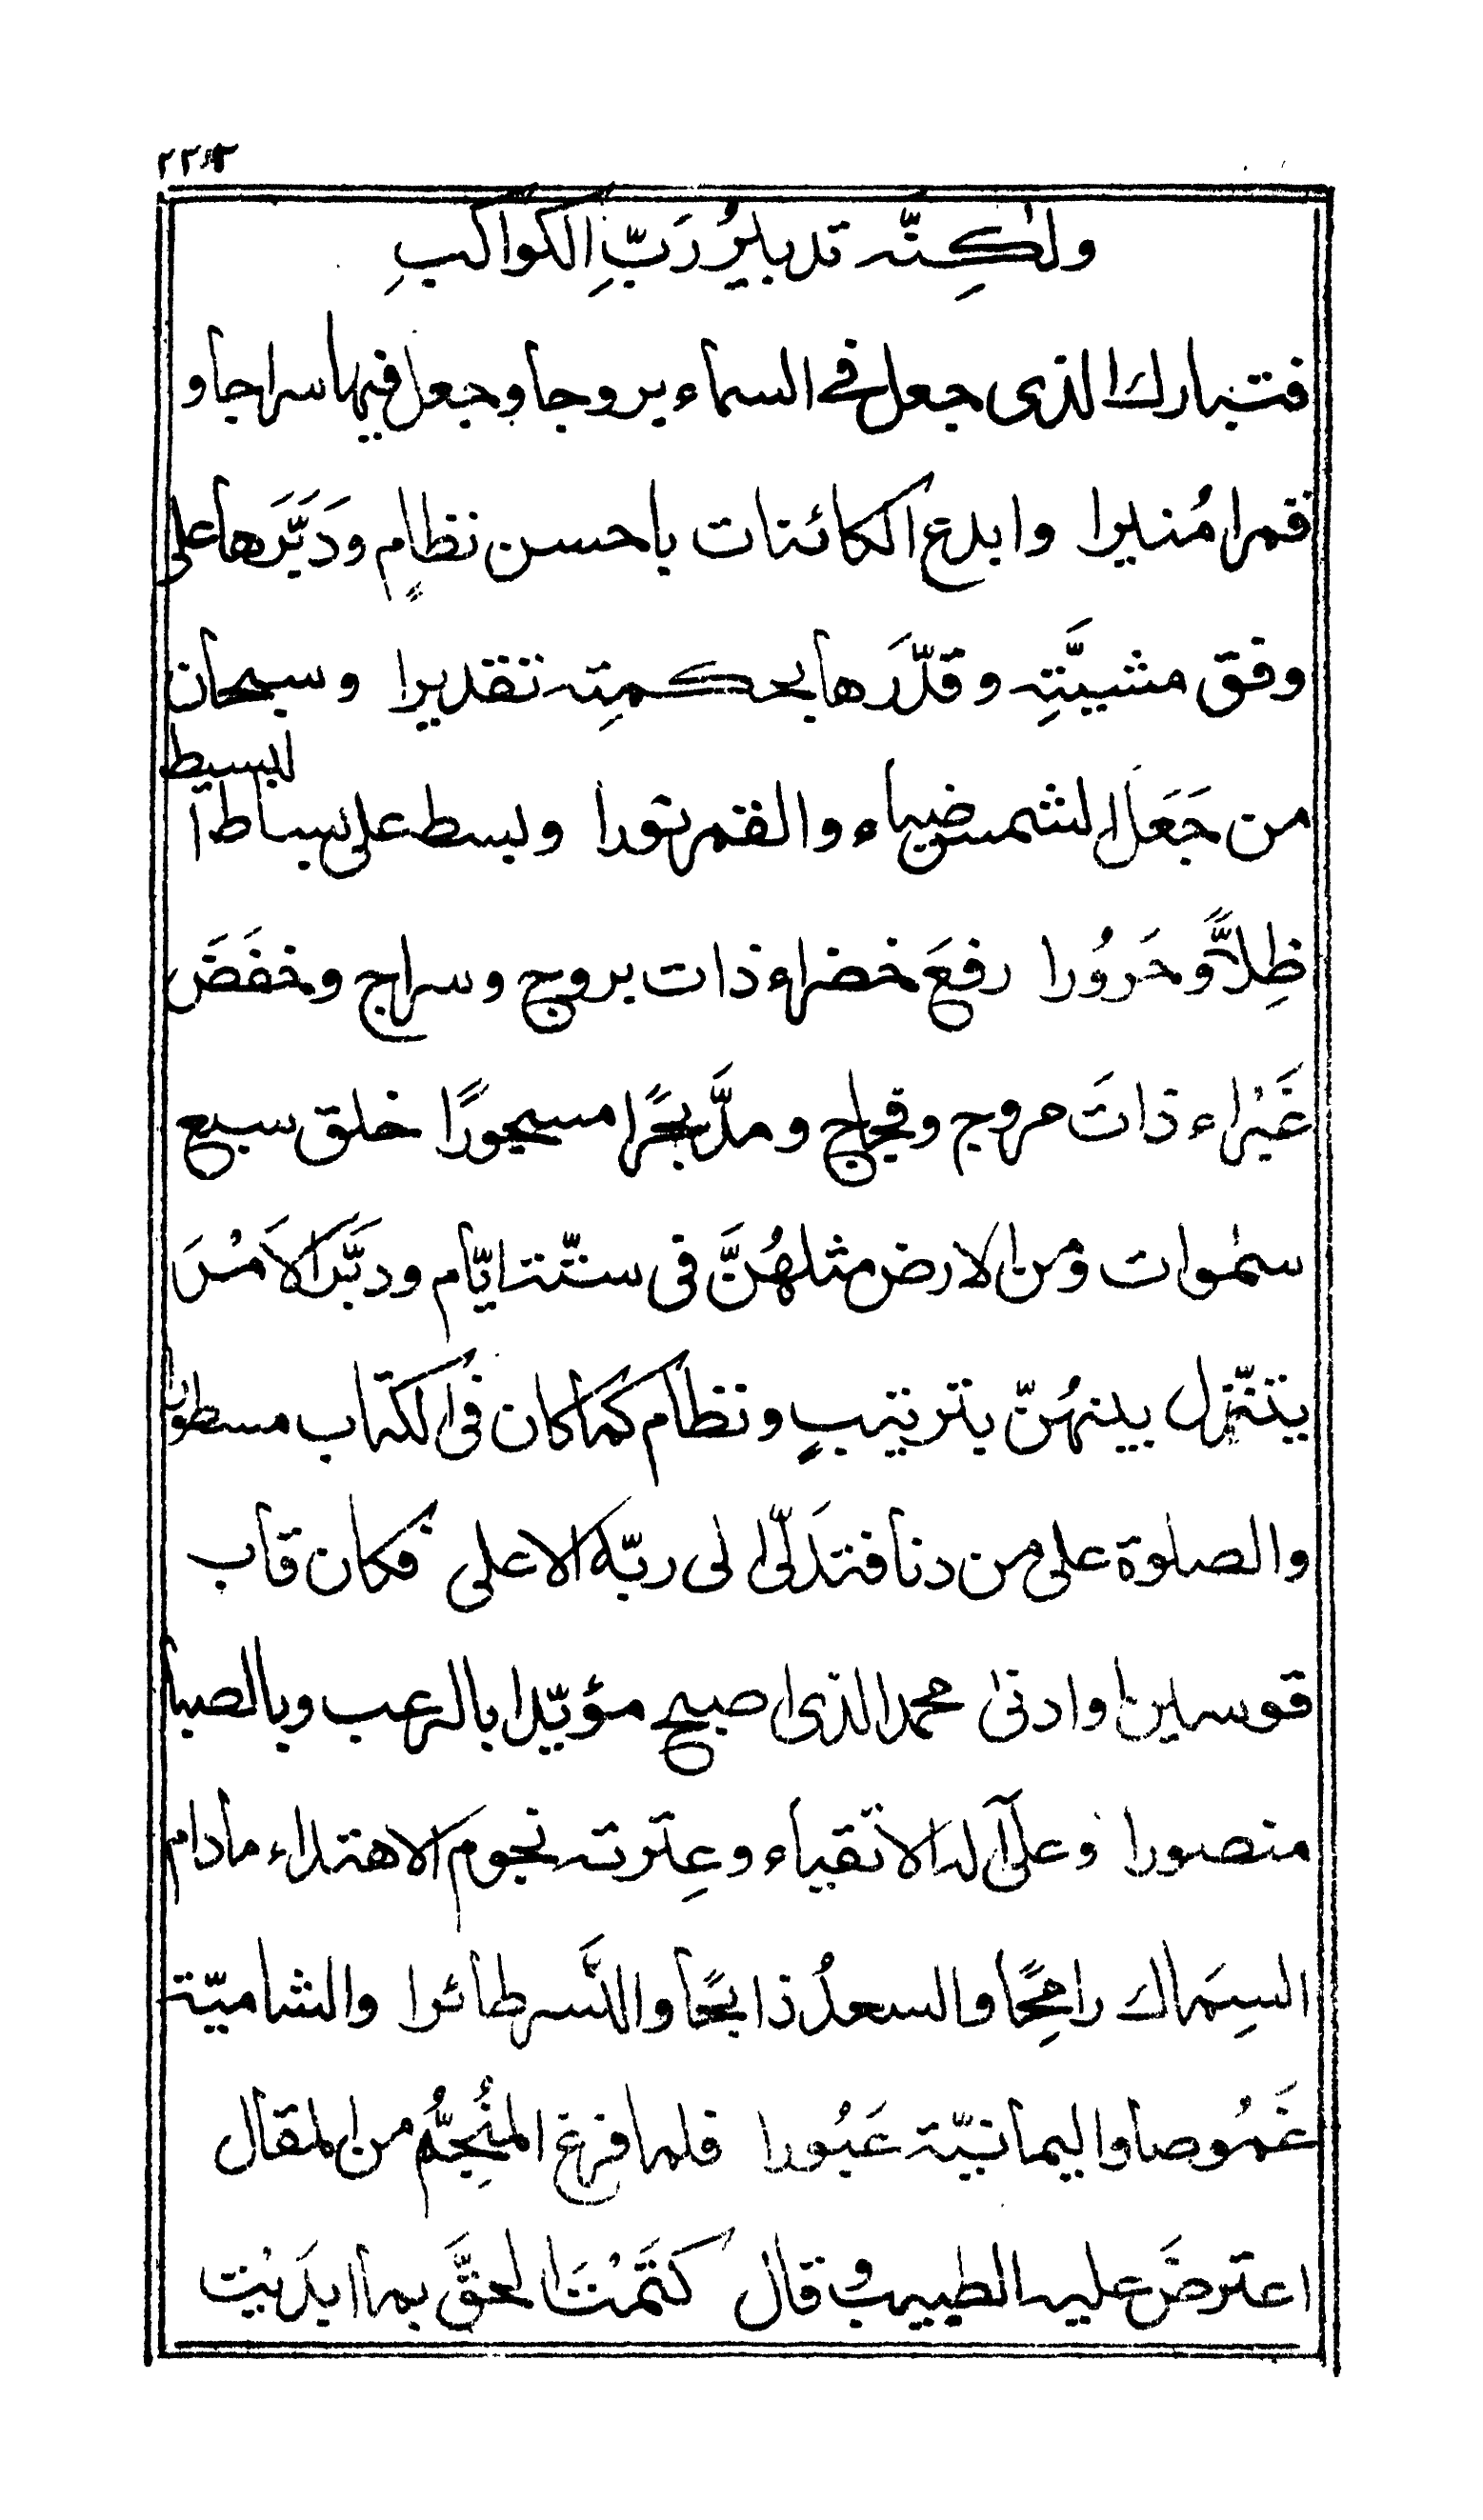 ولٰكِنّه تدبيرُ رَبِّ الكواكبِ
فتبارك الذى جعل فى السماء بروجا وجعل فيها سراجا و
قمرا مُنيرا وابدع الكائنات باحسن نظامٍ ودَبَّرَها على
وفق مشيَّتِه وقدَّرَها بحكمتِه تقديرا وسبحان
من جَعَلَ الشمس ضياء والقمر نورا وبسط على بساط البسيط
ظِلاًّ وحَرُورا رفعَ خضراء ذات بروج وسراج وخفَضَ
غَبْراء ذاتَ مروج وفجاج ومدَّ بحْرًا مسجورًا خلق سبع
سمٰوات ومن الارض مثلهُنَّ فى ستّة ايّام ودبَّرَ الاَمْرَ
يتنزّل بينهُنّ بترتيبٍ ونظام كما كان فى الكتاب مسطورا
والصلوة على من دنا فتدَلّى الى ربّه الاعلى فكان قاب
قوسين او ادنى محمد الذى اصبح مؤيّدا بالرعب وبالصبا
منصورا وعلى آله الاتقياء وعِترته نجوم الاهتداء مادام
السِمَاك رامِحًا والسعدُ ذابحًا والنَّسر طائرا والشاميّة
غَمُوصا واليمانيّة عَبُورا فلما فرغ المُنَجِّمُ من المقال
اعترضَ عليه الطبيبُ وقال كتَمْتَ الحقَّ بما ابدَيْت